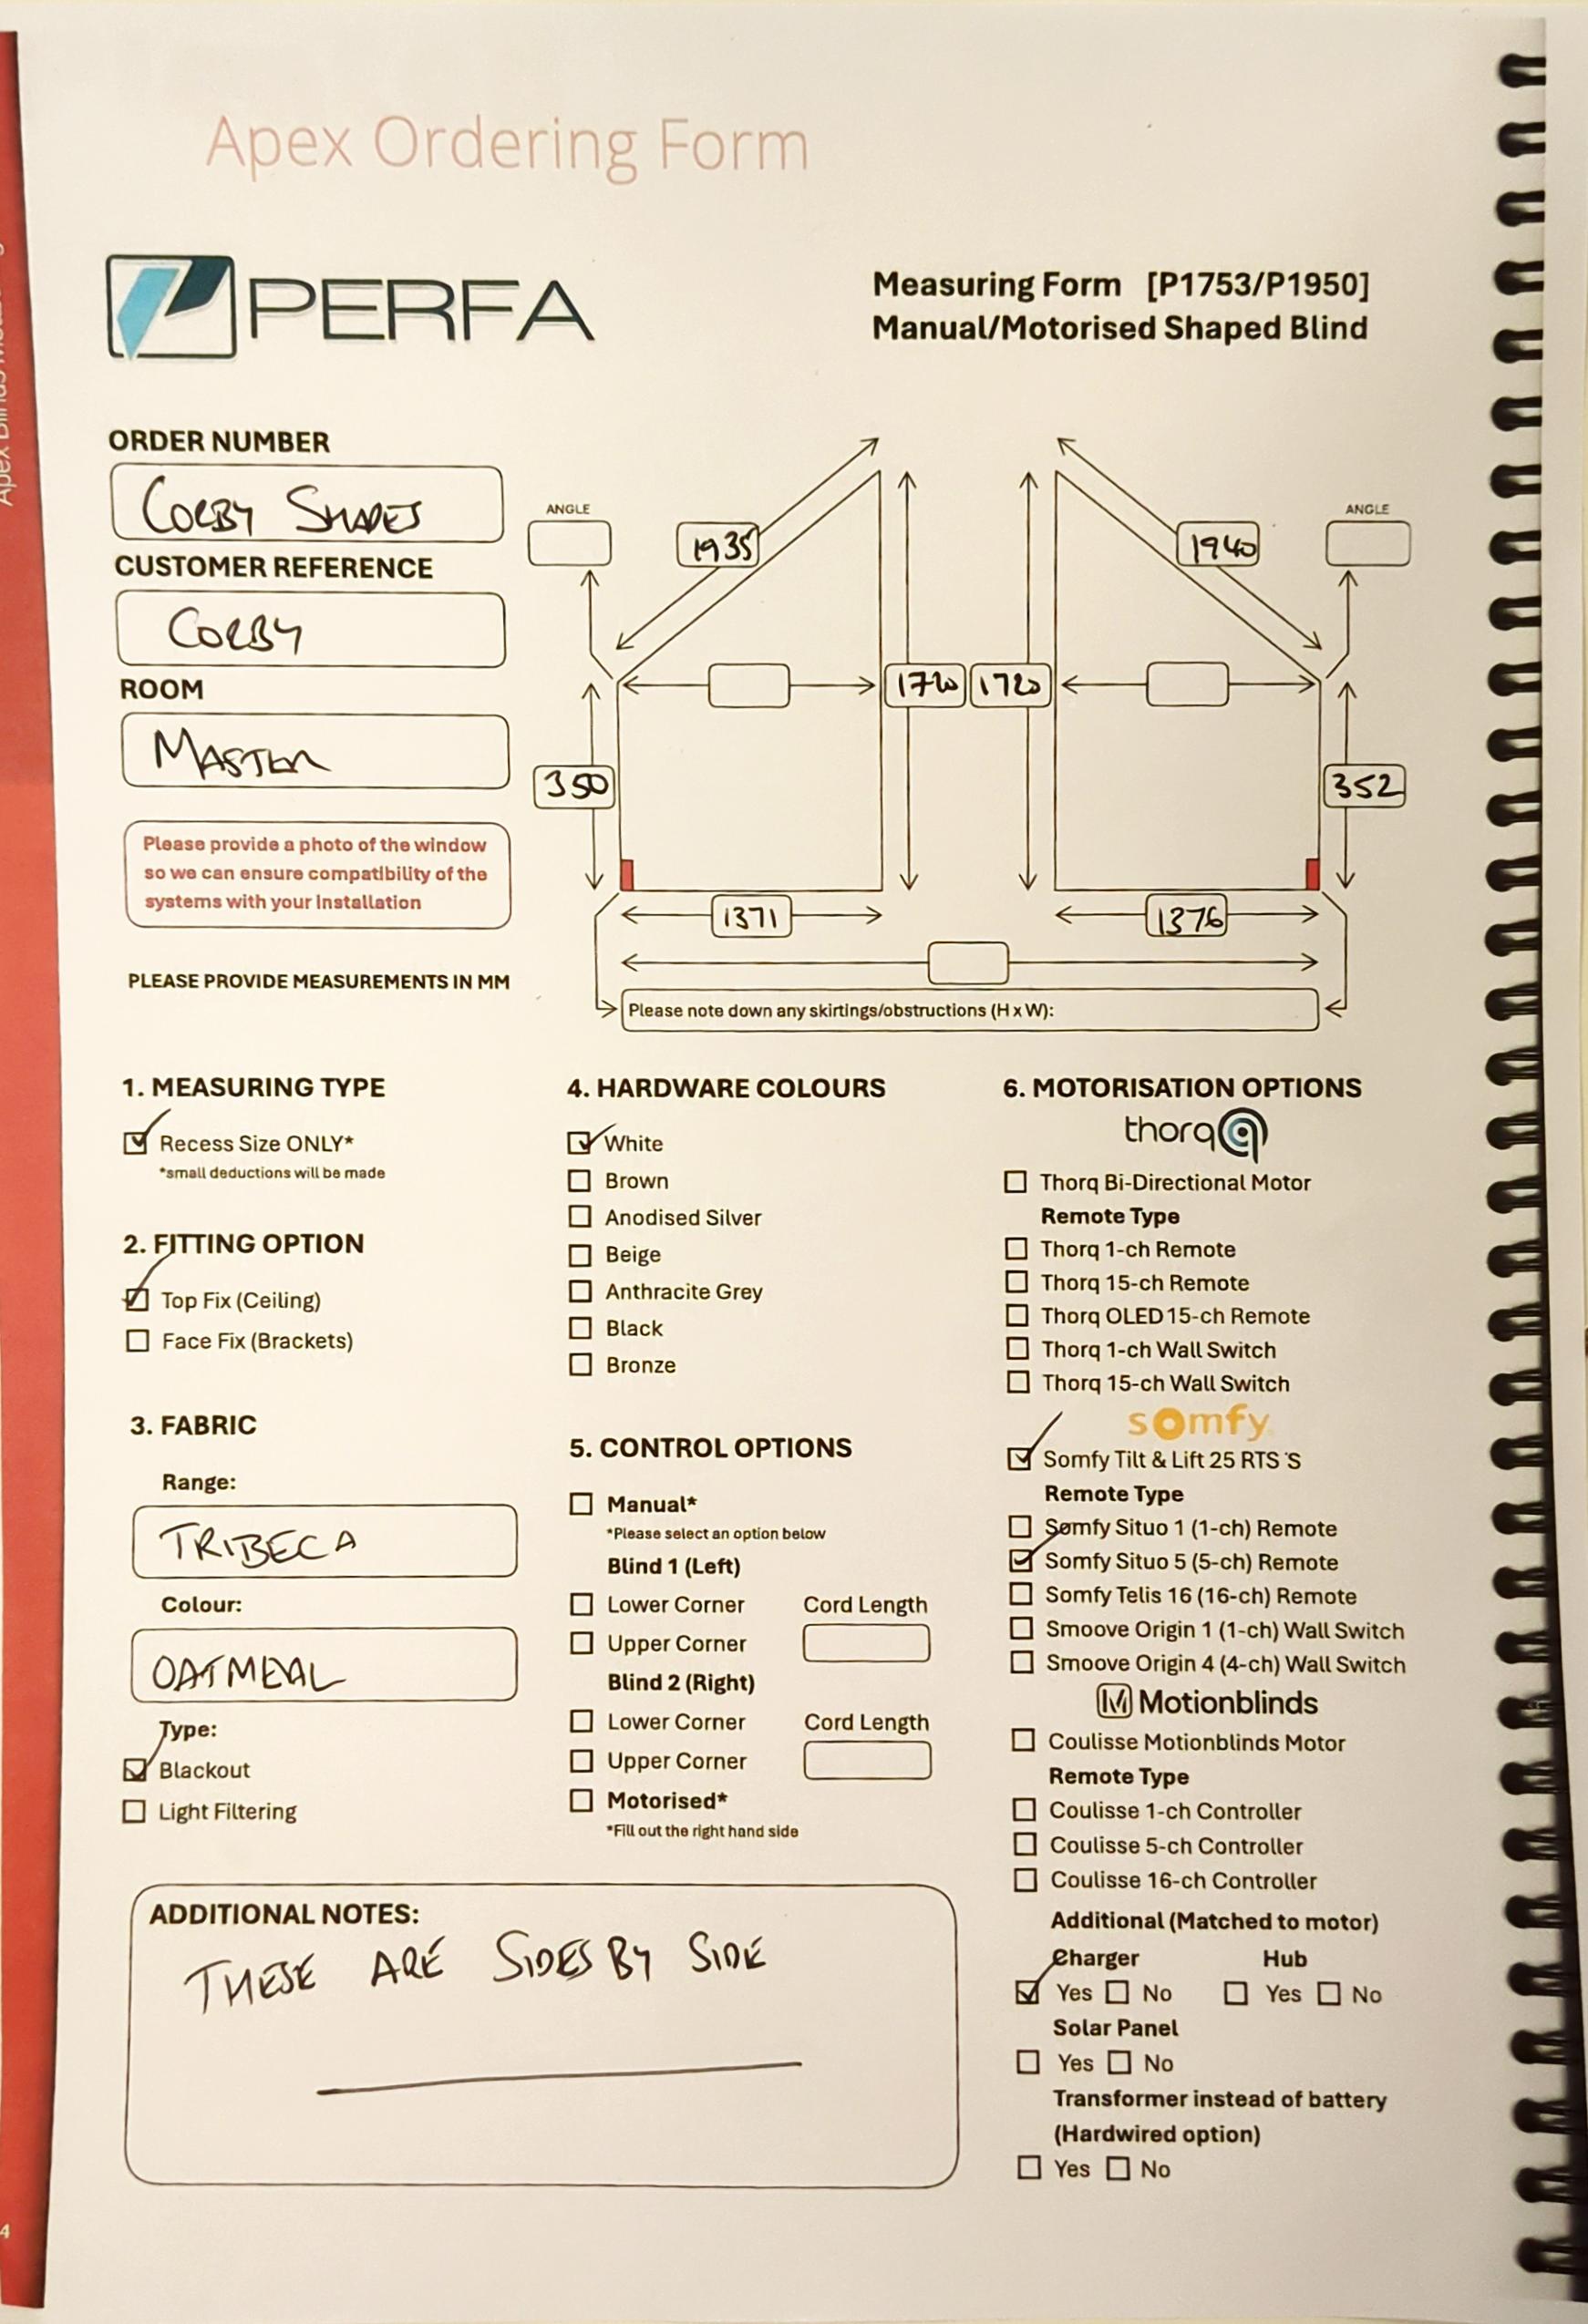 Apex Ordering Form
PERFA
Measuring Form [P1753/P1950]
Manual/Motorised Shaped Blind
ORDER NUMBER
CORBY SHAPES
CUSTOMER REFERENCE
CORBY
ROOM
MASTER
Please provide a photo of the window
so we can ensure compatibility of the
systems with your installation
PLEASE PROVIDE MEASUREMENTS IN MM
ANGLE
ANGLE
1935
1940
1720
1720
350
352
1371
1376
Please note down any skirtings/obstructions (H x W):
1. MEASURING TYPE
Recess Size ONLY*
*small deductions will be made
2. FITTING OPTION
Top Fix (Ceiling)
Face Fix (Brackets)
3. FABRIC
Range:
TRIBECA
Colour:
OATMEAL
Type:
Blackout
Light Filtering
4. HARDWARE COLOURS
White
Brown
Anodised Silver
Beige
Anthracite Grey
Black
Bronze
5. CONTROL OPTIONS
Manual*
*Please select an option below
Blind 1 (Left)
Lower Corner Cord Length
Upper Corner
Blind 2 (Right)
Lower Corner Cord Length
Upper Corner
Motorised*
*Fill out the right hand side
6. MOTORISATION OPTIONS
thorq
Thorq Bi-Directional Motor
Remote Type
Thorq 1-ch Remote
Thorq 15-ch Remote
Thorq OLED 15-ch Remote
Thorq 1-ch Wall Switch
Thorq 15-ch Wall Switch
somfy
Somfy Tilt & Lift 25 RTS 'S
Remote Type
Somfy Situo 1 (1-ch) Remote
Somfy Situo 5 (5-ch) Remote
Somfy Telis 16 (16-ch) Remote
Smoove Origin 1 (1-ch) Wall Switch
Smoove Origin 4 (4-ch) Wall Switch
Motionblinds
Coulisse Motionblinds Motor
Remote Type
Coulisse 1-ch Controller
Coulisse 5-ch Controller
Coulisse 16-ch Controller
Additional (Matched to motor)
Charger Hub
Yes No Yes No
Solar Panel
Yes No
Transformer instead of battery
(Hardwired option)
Yes No
ADDITIONAL NOTES:
THESE ARE SIDES BY SIDE
4